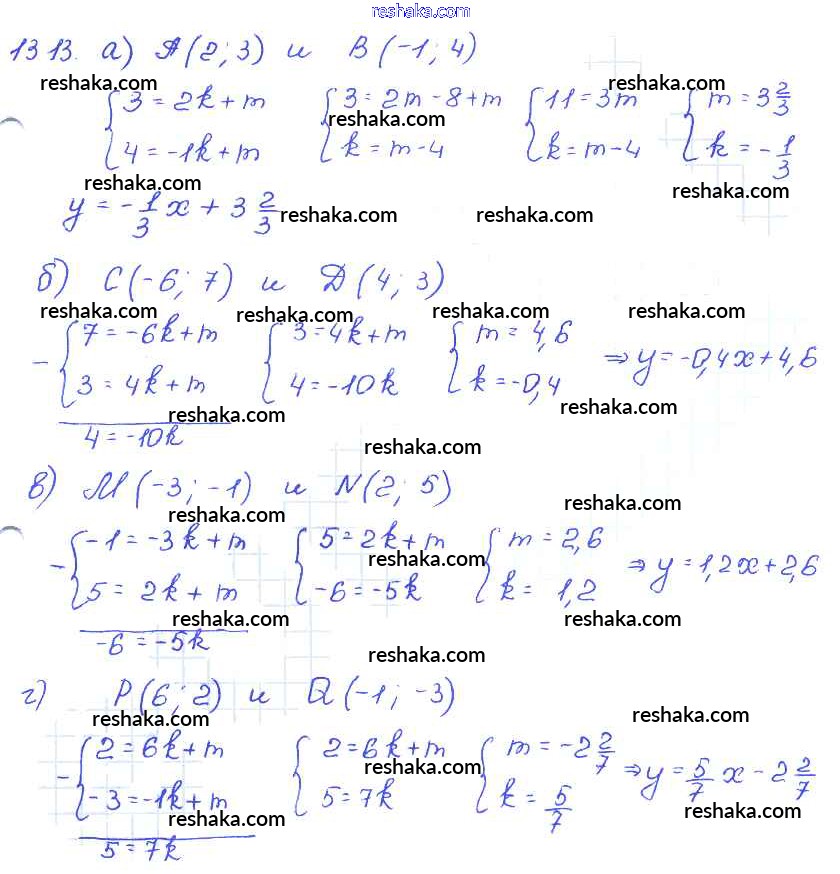 reshaka.com
13 13. а) A(2; 3) и B(-1; 4)
reshaka.com reshaka.com
{3 = 2k + m {3 = 2m - 8 + m {11 = 3m {m = 3 2/3
reshaka.com
{4 = -1k + m {k = m - 4 {k = m - 4 {k = -1/3
reshaka.com reshaka.com
y = -1/3 x + 3 2/3 reshaka.com reshaka.com
б) C(-6; 7) и D(4; 3)
reshaka.com reshaka.com reshaka.com reshaka.com
- {7 = -6k + m {3 = 4k + m {m = 4,6 ⇒ y = -0,4x + 4,6
{3 = 4k + m {4 = -10k {k = -0,4
reshaka.com reshaka.com
4 = -10k reshaka.com
в) M(-3; -1) и N(2; 5)
reshaka.com reshaka.com
- {-1 = -3k + m {5 = 2k + m {m = 2,6 ⇒ y = 1,2x + 2,6
reshaka.com
{5 = 2k + m {-6 = -5k {k = 1,2
reshaka.com reshaka.com
-6 = -5k reshaka.com
г) P(6; 2) и Q(-1; -3)
reshaka.com reshaka.com
- {2 = 6k + m {2 = 6k + m {m = -2 2/7 ⇒ y = 5/7 x - 2 2/7
reshaka.com
{-3 = -1k + m {5 = 7k {k = 5/7
reshaka.com reshaka.com
5 = 7k